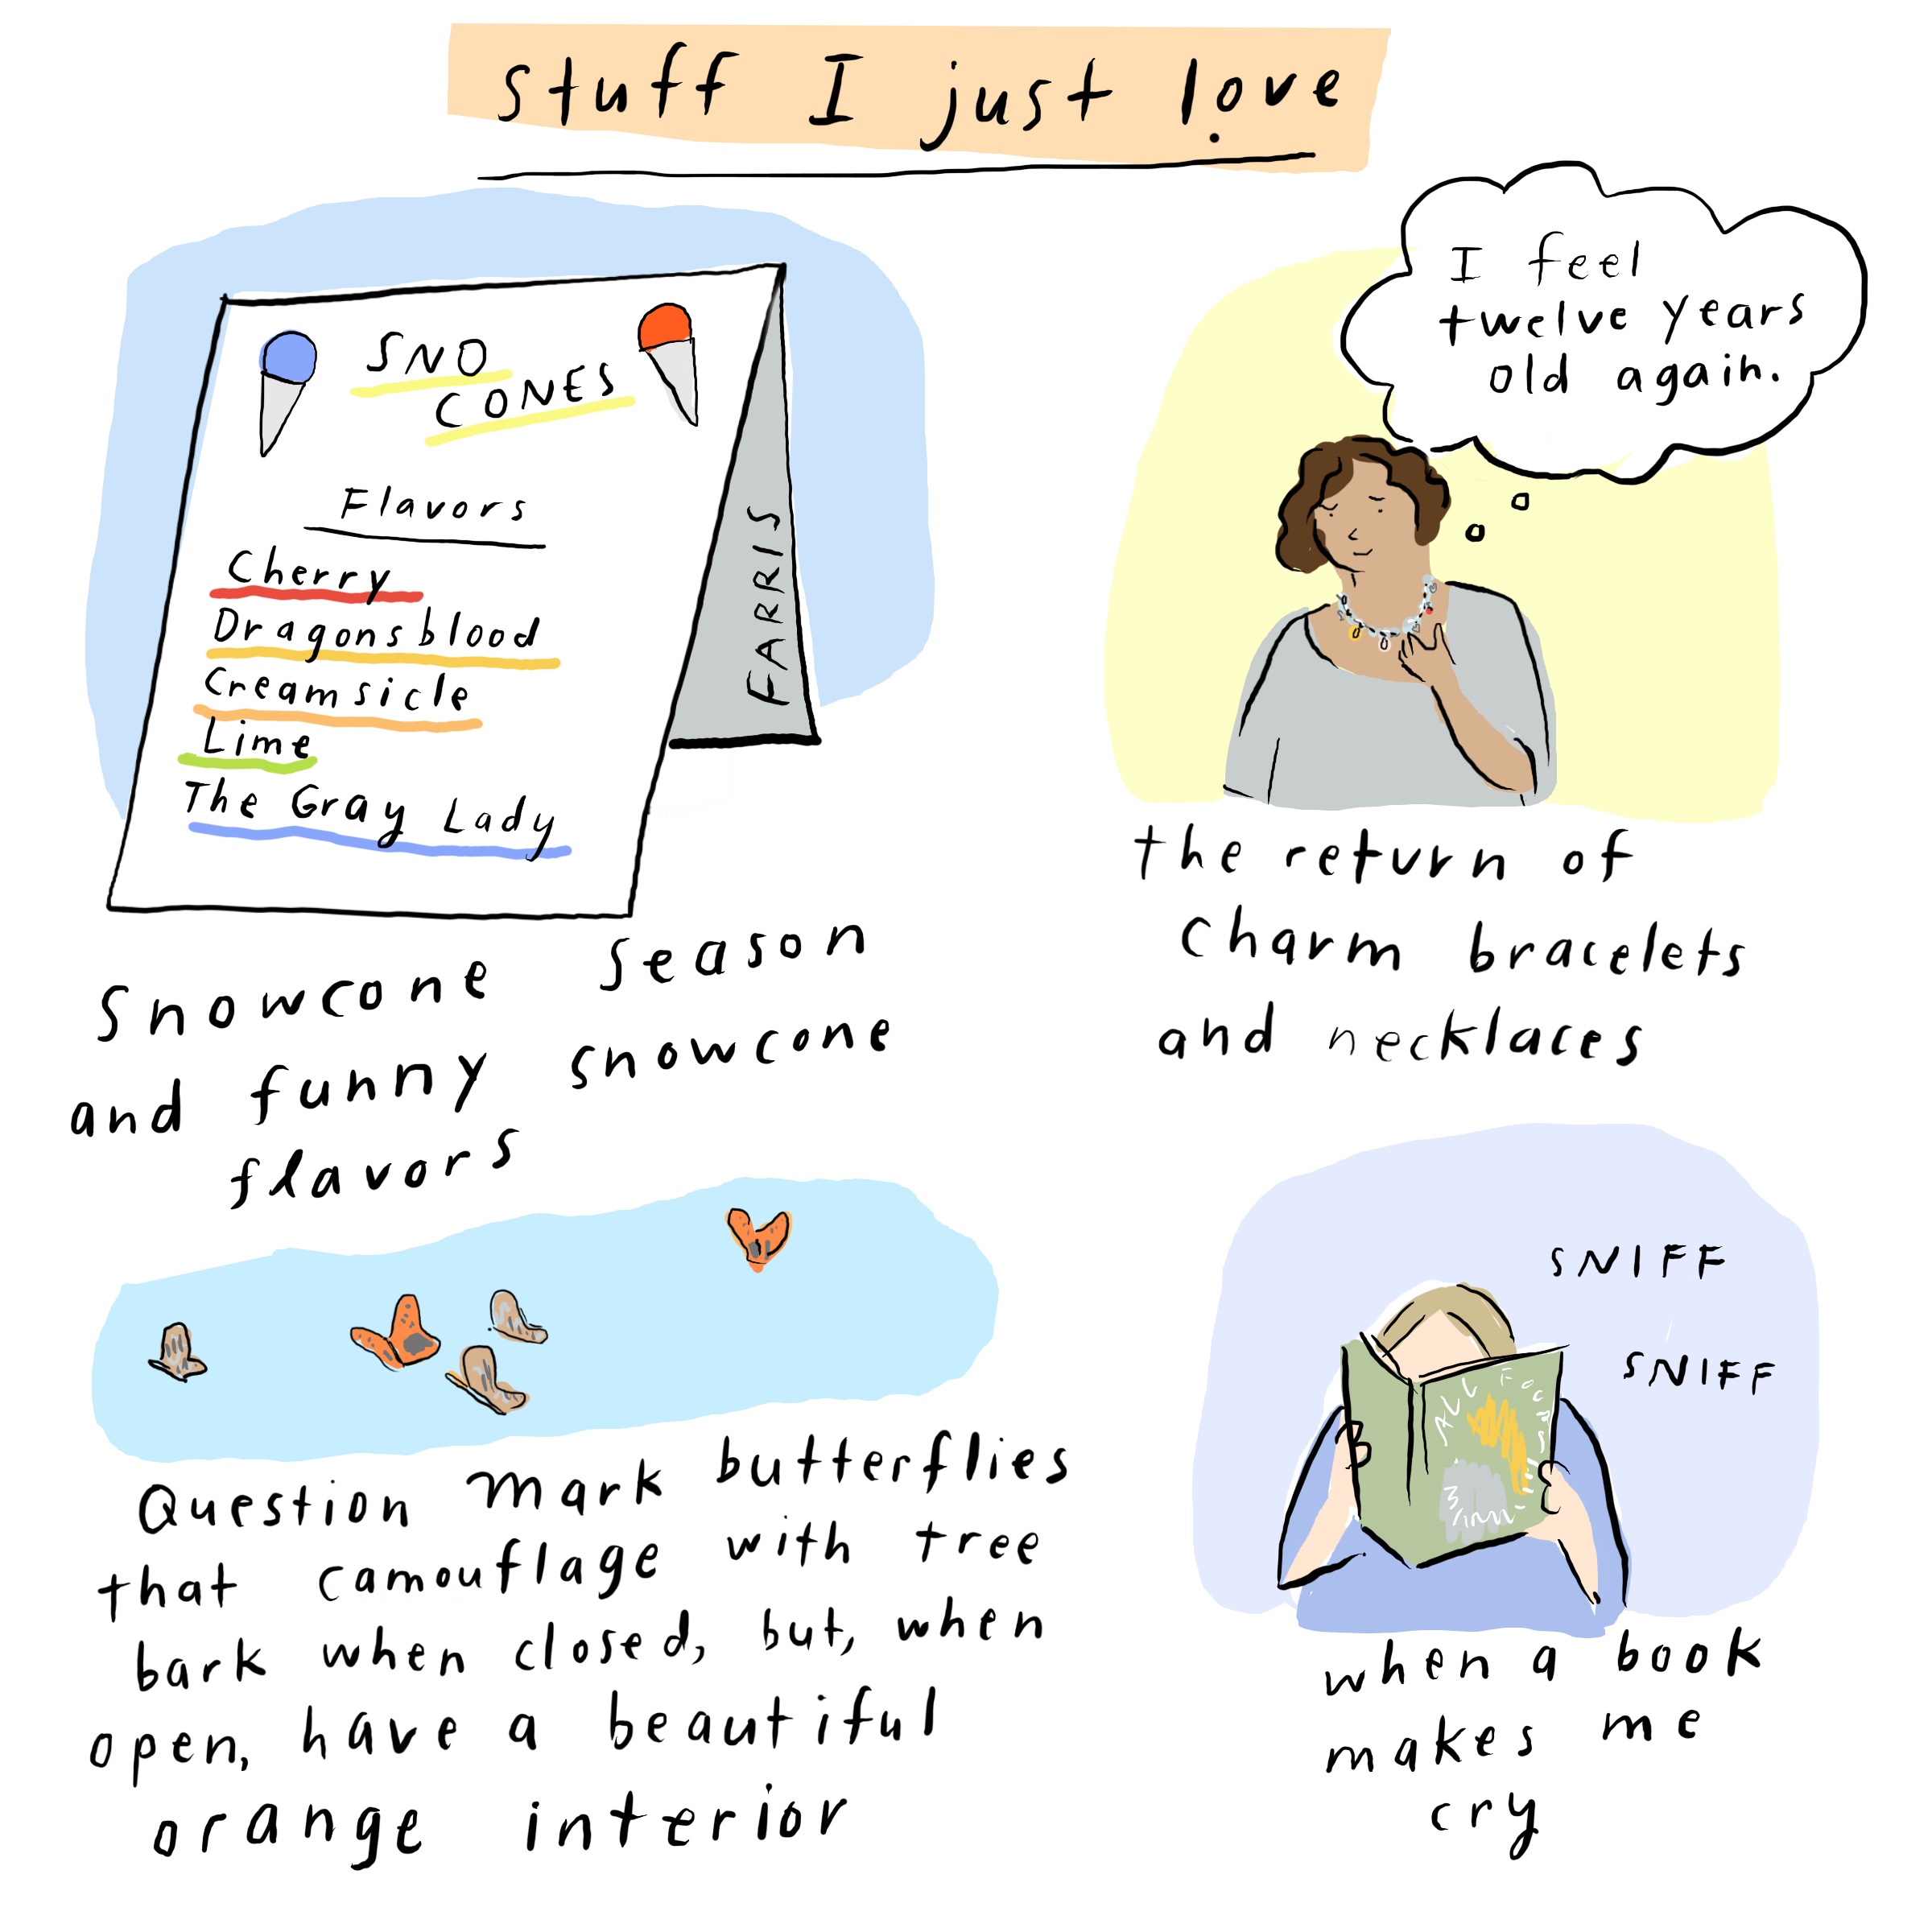 stuff I just love
SNO
CONES
Flavors
Cherry
Dragonsblood
Creamsicle
Lime
The Gray Lady
FARRIS
Snowcone season
and funny snowcone
flavors
I feel
twelve years
old again.
the return of
charm bracelets
and necklaces
Question Mark butterflies
that camouflage with tree
bark when closed, but, when
open, have a beautiful
orange interior
SNIFF
SNIFF
when a book
makes me
cry